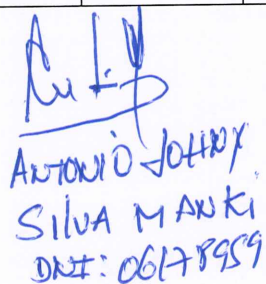 ANTONIO JOHNY
SILVA MANKI
DNI: 06178959